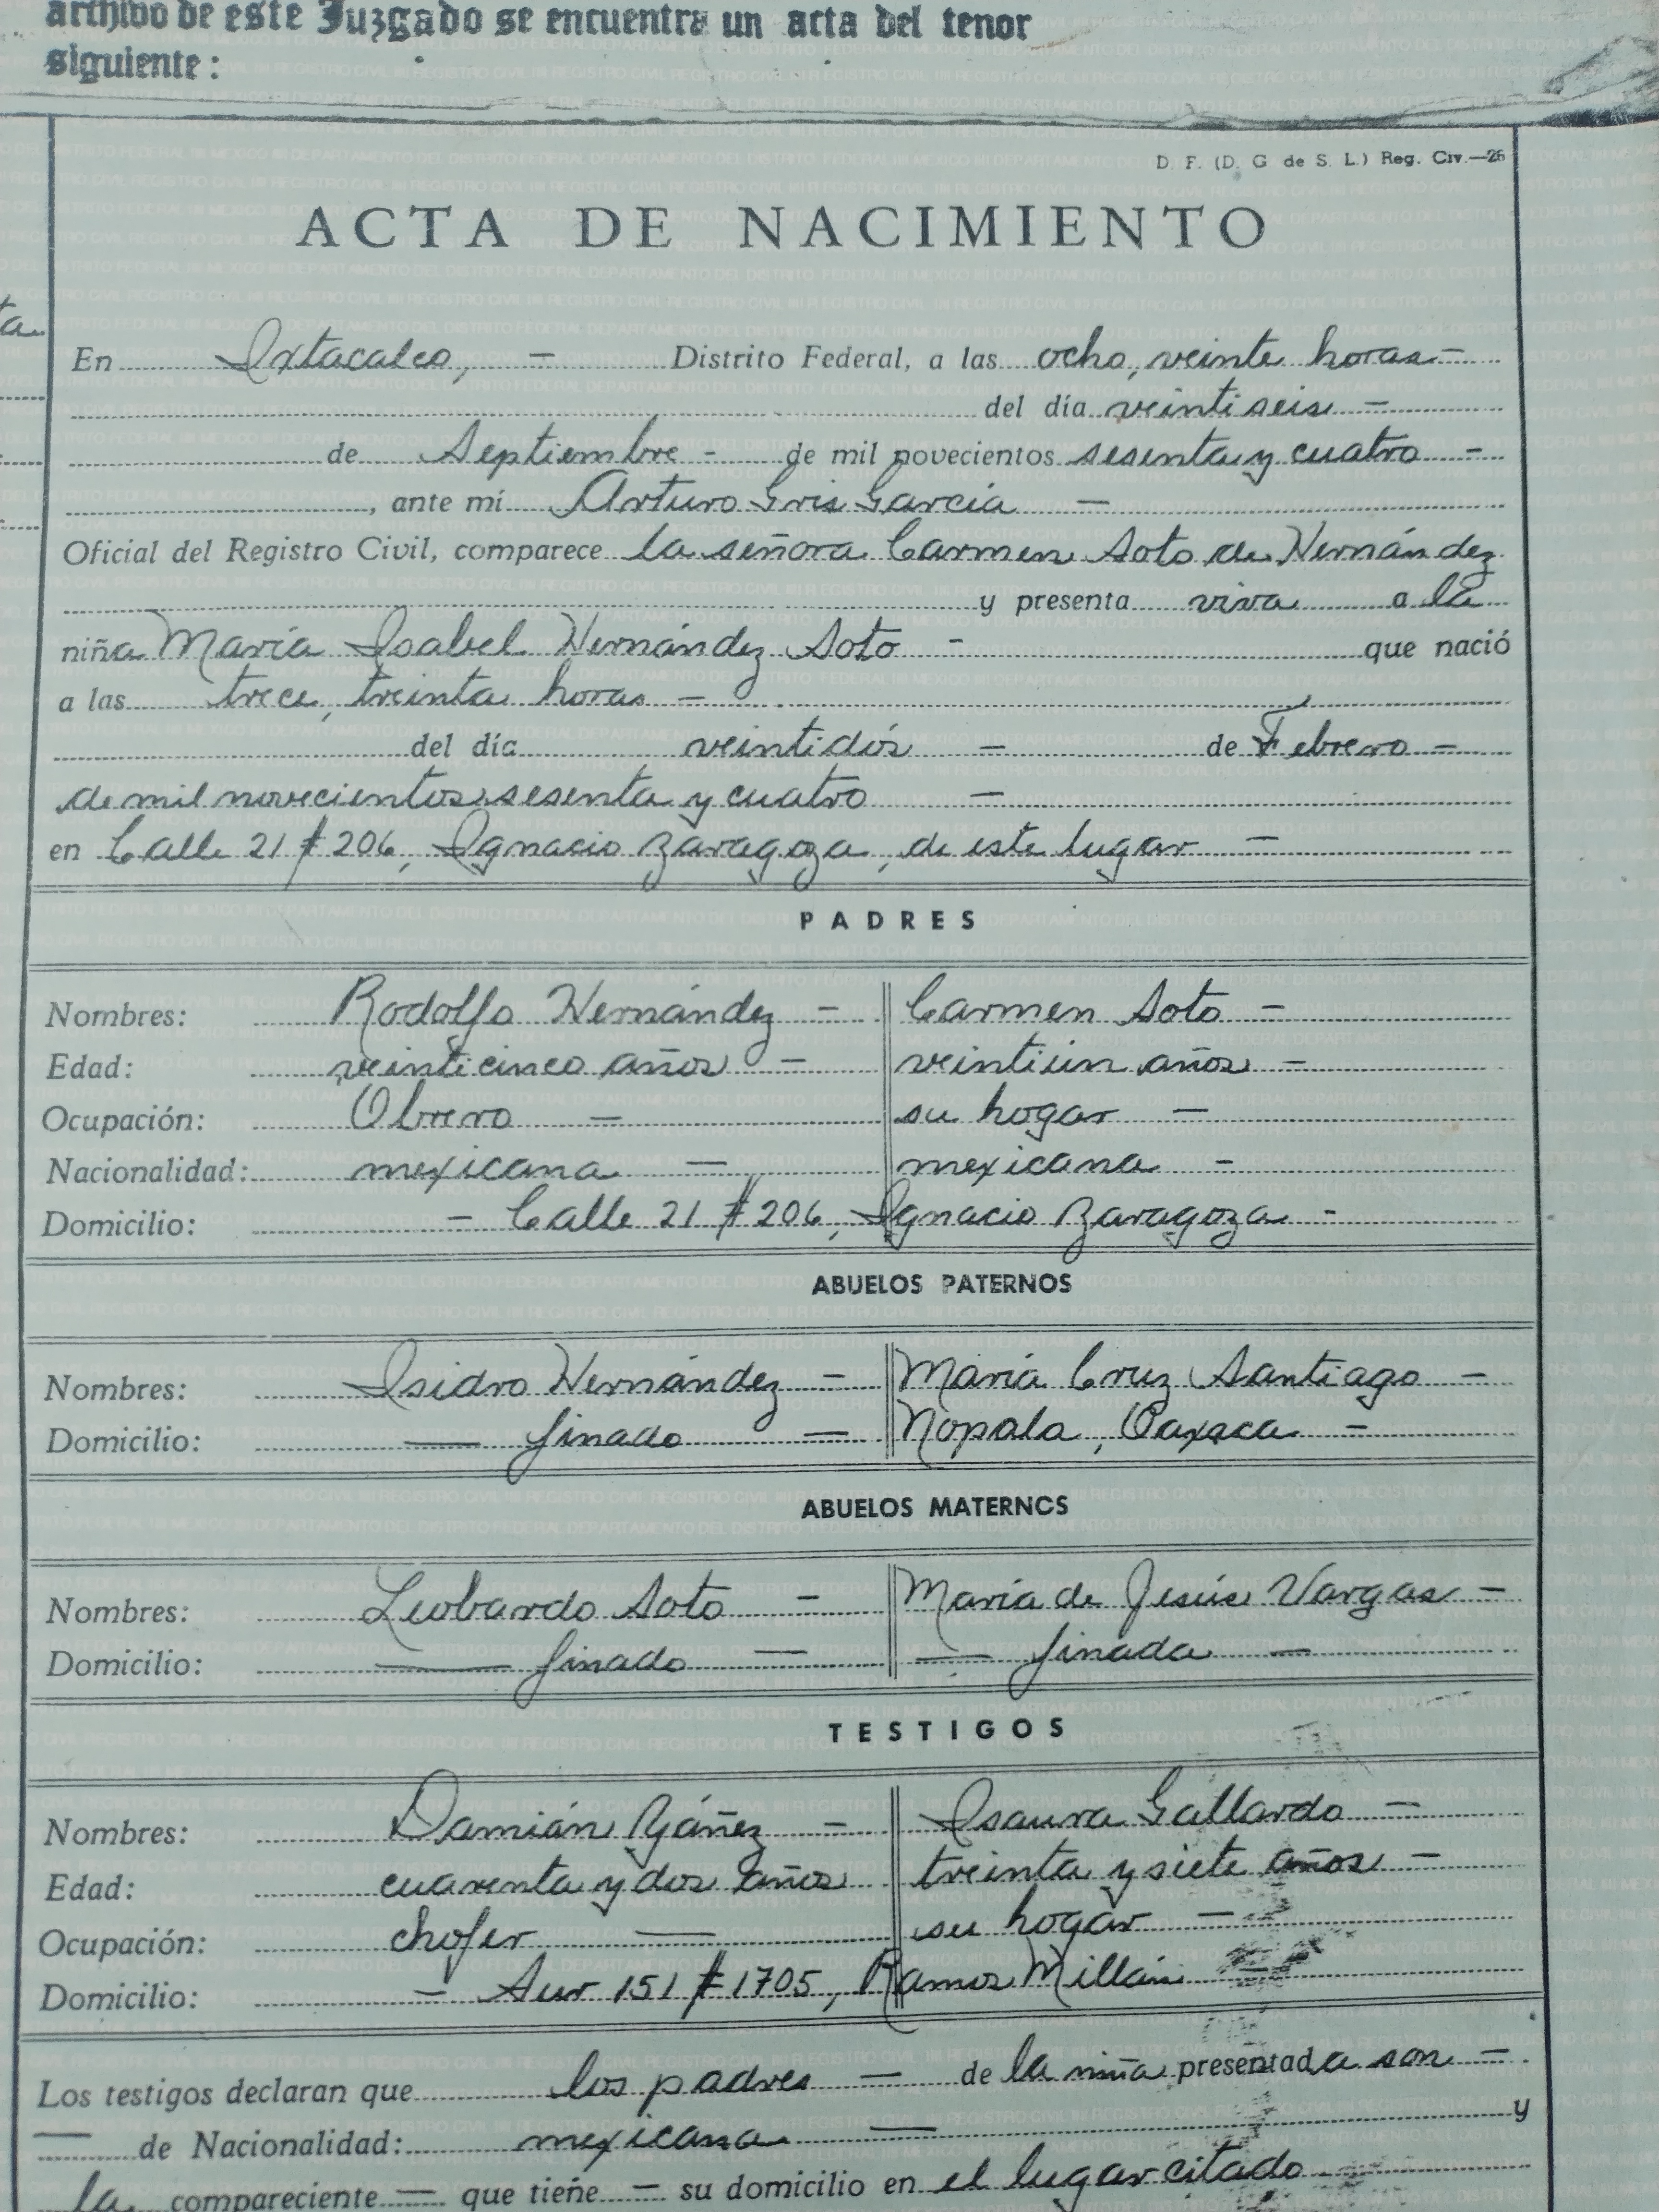 archivo de este Juzgado se encuentra un acta del tenor
siguiente:
D. F. (D. G de S. L.) Reg. Civ.—26
ACTA DE NACIMIENTO
ta
En Ixtacalco, — Distrito Federal, a las ocho, veinte horas —
del día veintiseis —
de Septiembre - de mil novecientos sesenta y cuatro —
, ante mí Arturo Gris García —
Oficial del Registro Civil, comparece la señora Carmen Soto de Hernández
y presenta viva a la
niña María Isabel Hernández Soto - que nació
a las trece, treinta horas —
del día veintidós — de Febrero —
de mil novecientos sesenta y cuatro —
en Calle 21 # 206, Ignacio Zaragoza, de este lugar —
PADRES
Nombres: Rodolfo Hernández — Carmen Soto —
Edad: veinticinco años — veintiún años —
Ocupación: Obrero — su hogar —
Nacionalidad: mexicana — mexicana -
Domicilio: — Calle 21 # 206, Ignacio Zaragoza -
ABUELOS PATERNOS
Nombres: Isidro Hernández — María Cruz Santiago —
Domicilio: — finado — Nopala, Oaxaca —
ABUELOS MATERNOS
Nombres: Leobardo Soto — María de Jesús Vargas —
Domicilio: — finado — — finada —
TESTIGOS
Nombres: Damián Yáñez — Isaura Gallardo —
Edad: cuarenta y dos años treinta y siete años —
Ocupación: chofer — su hogar —
Domicilio: — Sur 151 # 1705, Ramos Millán —
Los testigos declaran que los padres — de la niña presentada son —
— de Nacionalidad: mexicana — y
la compareciente — que tiene — su domicilio en el lugar citado